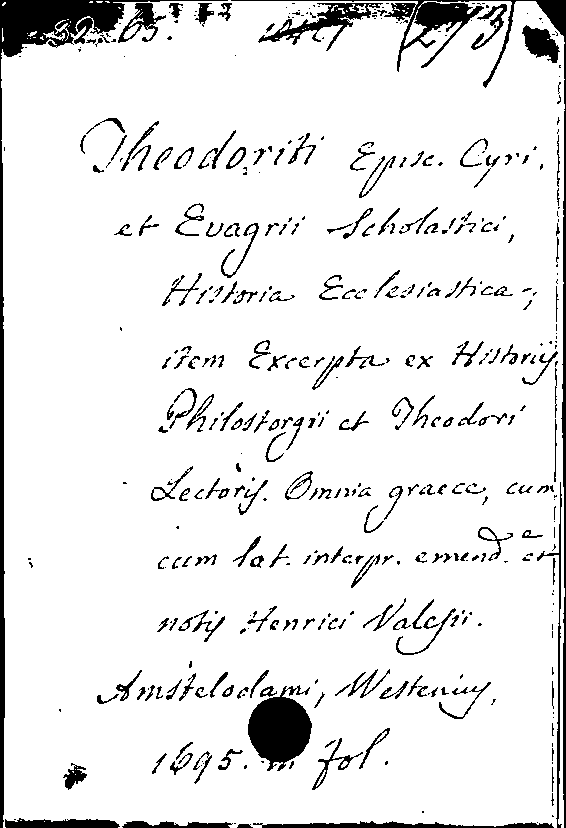 32. 65. (273)
Theodoriti Episc. Cyri,
et Evagrii Scholastici,
Historia Ecclesiastica;
item Excerpta ex Historijs
Philostorgii et Theodori
Lectoris. Omnia graece, cum
cum lat. interpr. emend. et
notis Henrici Valesii.
Amstelodami, Wetenius,
1695. in fol.